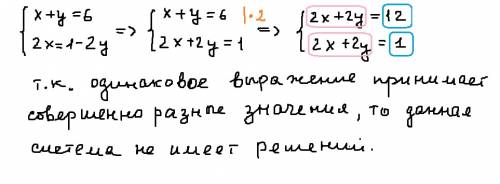 { x+y=6 2x=1-2y => { x+y=6 |·2 2x+2y=1 => { 2x+2y=12 2x+2y=1
т.к. одинаковое выражение принимает
совершенно разные значения, то данная
система не имеет решений.